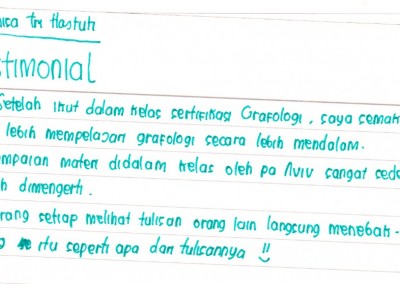 ica Tri Hastuti
stimonial
Setelah ikut dalam kelas sertifikasi Grafologi, saya semak
lebih mempelajari grafologi secara lebih mendalam.
mpaian materi didalam kelas oleh pa Aviv sangat sede
h dimengerti.
rang setiap melihat tulisan orang lain langsung menebak-
itu seperti apa dari tulisannya !!